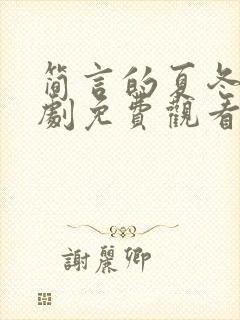 简言的夏冬
劇免費觀看
謝麗卿